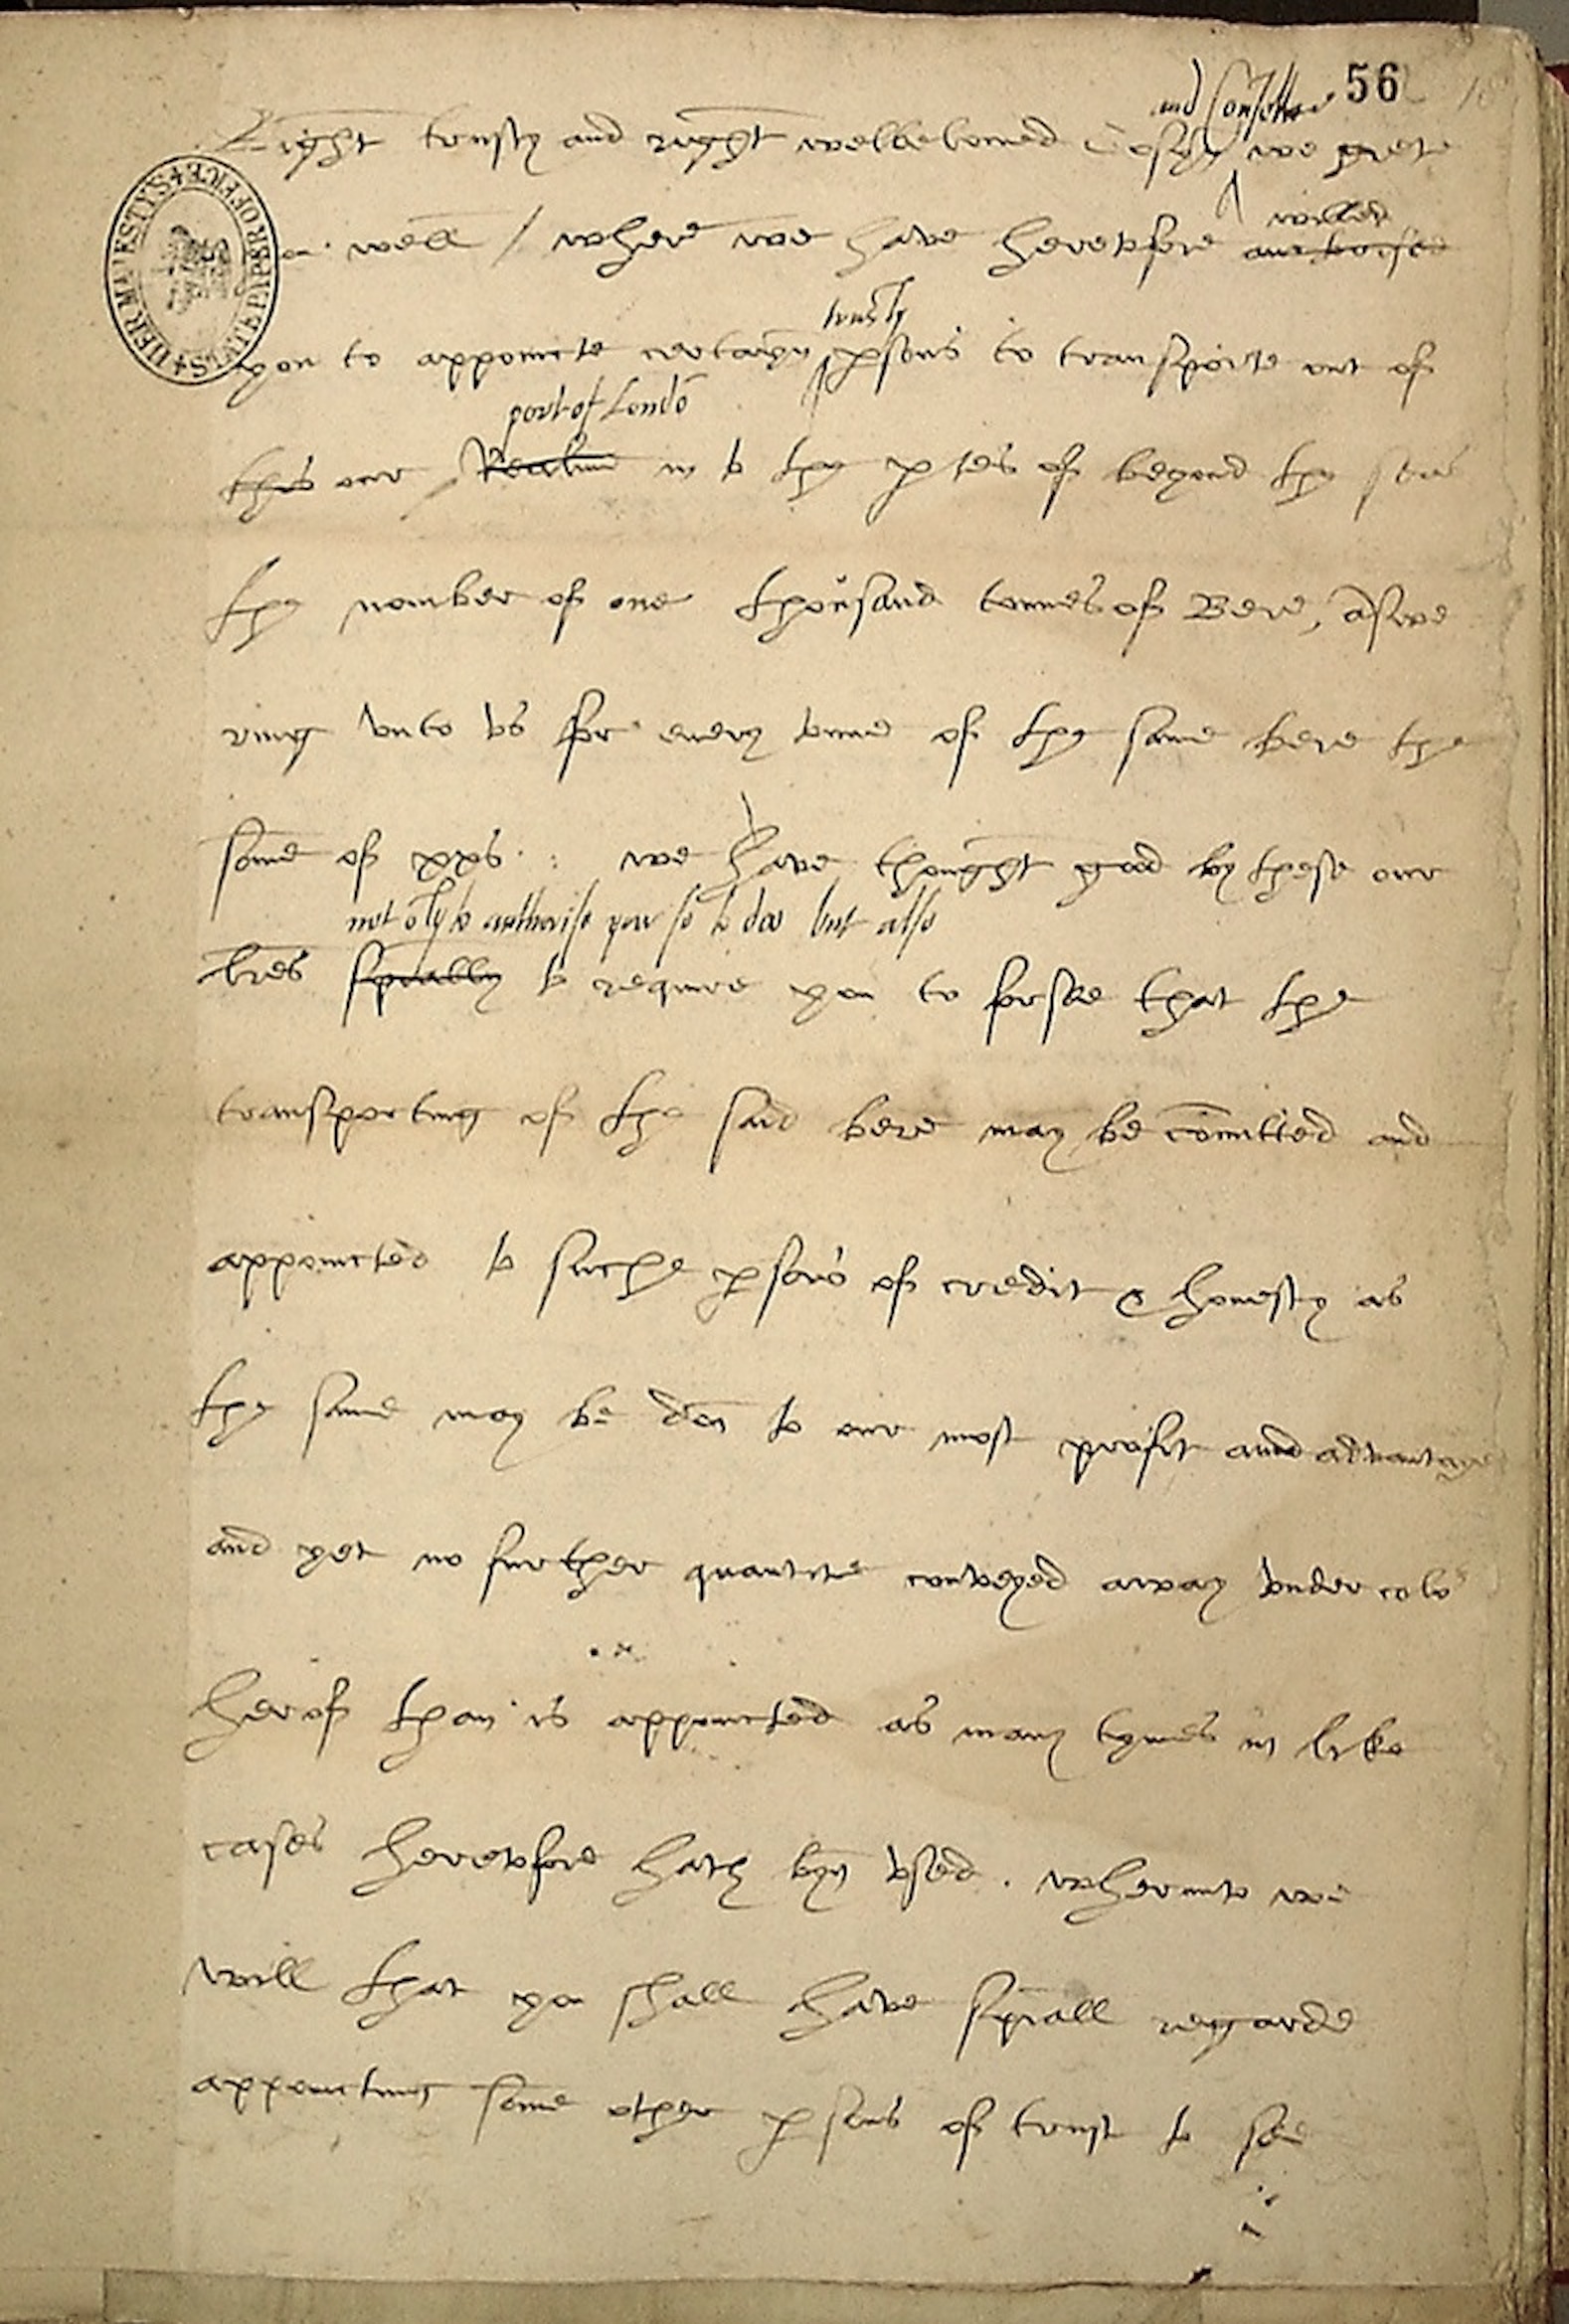 56
and Consellor
Right trusty and right welbeloued Cosyn we grete
you well / where we have heretofore auctorised
willed
trusty
you to appoincte certayn psons to transporte out of
port of Londō
this our Realme in to the ptes of beyond the seas
the nomber of one thousand tonnes of Bere, answe
ring vnto vs for euery tonne of the same bere the
some of xxs : we have thought good by these our
not ōly to authorise you so to doo but also
lres spially to require you to forsee that the
transporting of the said bere may be cōmitted and
appoincted to suche psons of credit & honesty as
the same may be don to our most profit and advantage
and yet no further quantite conveyed away vnder colo
herof than is appoincted as many tymes in like
cases heretofore hath byn vsed . wherunto we
will that you shall have spiall regarde
appointing some other psons of trust to see
HER MAJESTY'S STATE PAPER OFFICE